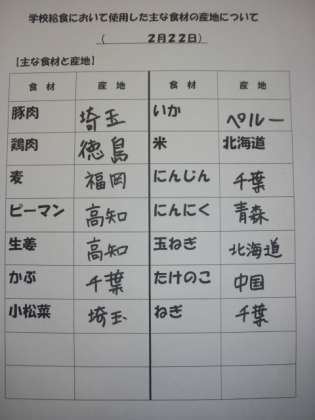 学校給食において使用した主な食材の産地について
(　2月22日)
【主な食材と産地】
食材 産地 食材 産地
豚肉 埼玉 いか ペルー
鶏肉 徳島 米 北海道
麦 福岡 にんじん 千葉
ピーマン 高知 にんにく 青森
生姜 高知 玉ねぎ 北海道
かぶ 千葉 たけのこ 中国
小松菜 埼玉 ねぎ 千葉